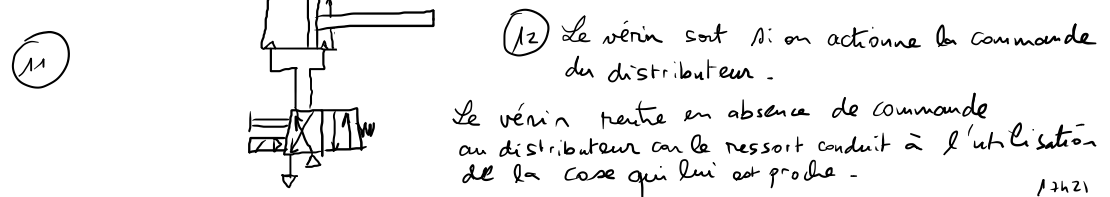 11
12 Le vérin sort si on actionne la commande
du distributeur.
Le vérin rentre en absence de commande
au distributeur car le ressort conduit à l'utilisation
de la case qui lui est proche.
17h21